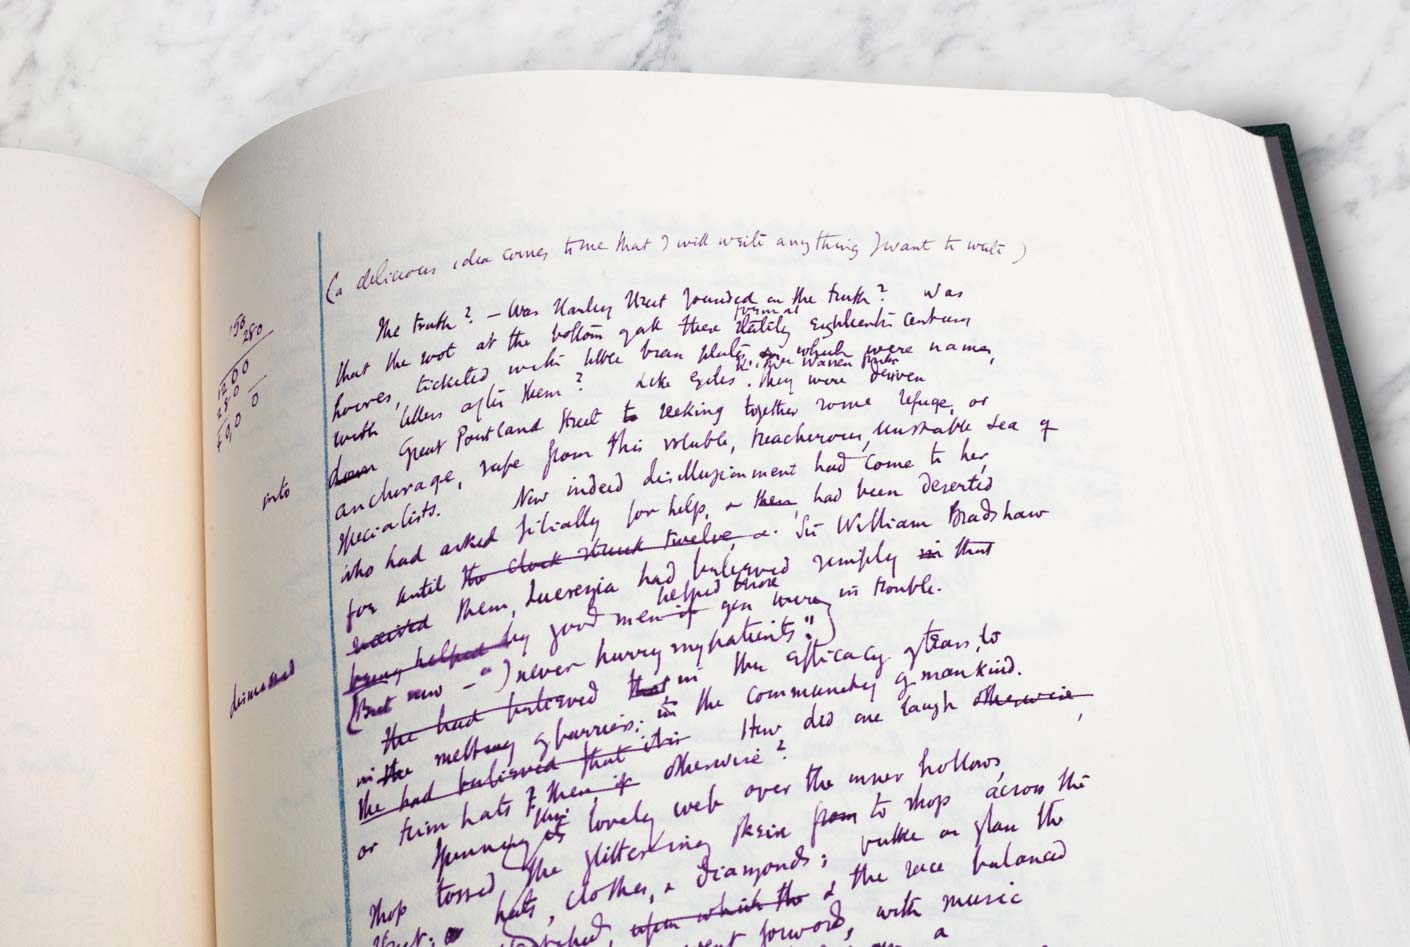 (a delicious idea comes to me that I will write anything I want to write)
150
280
The truth? — Was Harley Street founded on the truth? Was
1200
that the root at the bottom of all these stately eighteenth century
280
houres, ticketed with little brass plates on which were names,
00
with letters after them? Like exiles they were driven
down Great Portland Street to seeking together some refuge, or
anchorage, safe from this voluble, treacherous, unstable sea of
into
specialists. Now indeed disillusionment had come to her,
who had asked filially for help, & then, had been deserted
for until the clock struck twelve, Sir William Bradshaw
received them, Lucrezia had believed simply in that
helped those
being helped by good men if in trouble.
dismissed
(But now — "I never hurry my patients".)
She had believed that in the efficacy of tears, to
in the melting of barriers; in the community of mankind.
She had believed that it is How did one laugh otherwise,
or trim hats then, if otherwise?
Spinning its lovely web over the inner hollows,
this
tossed the glittering skein from to shop across the
shop hats, clothes, & diamonds; on glass the
Street; upon which the & the race balanced
went forward, with music
a